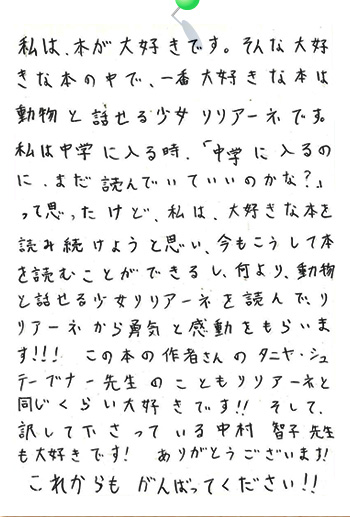 私は、本が大好きです。そんな大好
きな本の中で、一番大好きな本は
動物と話せる少女リリアーネです。
私は中学に入る時、「中学に入るの
に、まだ読んでいていいのかな?」
って思ったけど、私は、大好きな本を
読み続けようと思い、今もこうして本
を読むことができるし、何より、動物
と話せる少女リリアーネを読んで、リ
リアーネから勇気と感動をもらいま
す!!! この本の作者さんのタニヤ・シュ
テーブナー先生のこともリリアーネと
同じくらい大好きです!! そして、
訳して下さっている中村 智子先生
も大好きです! ありがとうございます!
これからもがんばってください!!